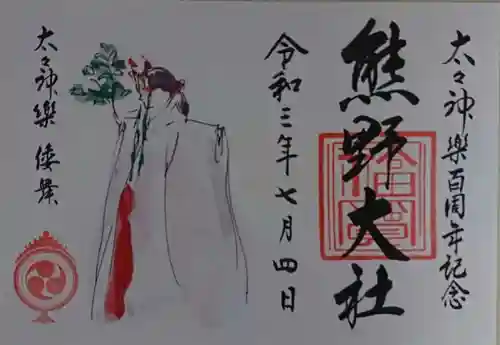 太々神樂百周年記念
熊野大社
令和三年七月四日
太々神樂 倭舞